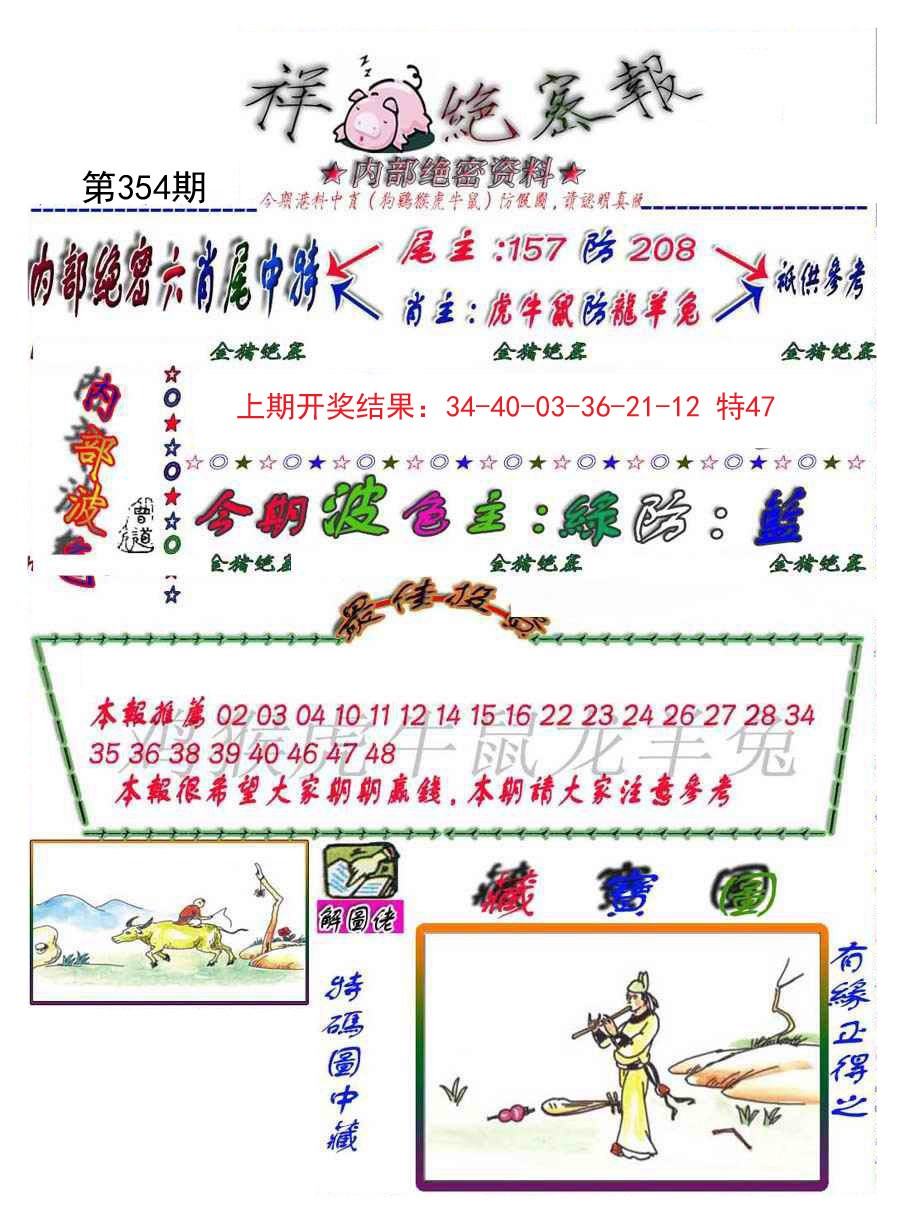 祥 絶密報
★内部绝密资料★
第354期
今期港料中肖(狗鷄猴虎牛鼠)防假圖,請認明真
内部绝密六肖尾中特
尾主:157防208
肖主:虎牛鼠防龍羊兔
衹供參考
金猪绝密 金猪绝密 金猪绝密
内部波色
上期开奖结果：34-40-03-36-21-12 特47
曾道
今期波色主:緑防:藍
金猪绝密 金猪绝密 金猪绝密
最佳投
鸡猴虎牛鼠龙羊兔
本報推薦 02 03 04 10 11 12 14 15 16 22 23 24 26 27 28 34
35 36 38 39 40 46 47 48
本報很希望大家期期贏錢,本期請大家注意參考
解圖佬
藏寶圖
特碼圖中藏
有緣正得之